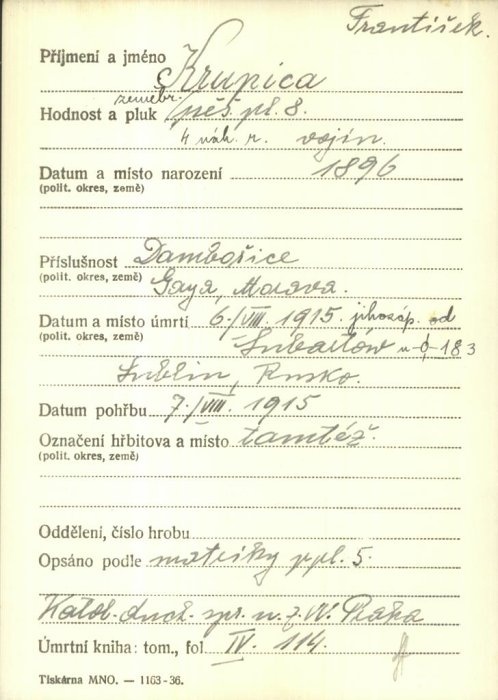 František.
Příjmení a jméno Krupica
Hodnost a pluk zeměbr. pěš. pl. 8.
4 náh. r. vojín.
Datum a místo narození 1896
(polit. okres, země)
Příslušnost Dambořice
(polit. okres, země) Gaya, Morava.
Datum a místo úmrtí 6./VIII. 1915. jihozáp. od
(polit. okres, země) Lubartów u ϕ 183
Lublin, Rusko.
Datum pohřbu 7./VIII. 1915
Označení hřbitova a místo tamtéž.
(polit. okres, země)
Oddělení, číslo hrobu
Opsáno podle matriky ppl. 5.
Katol. duch. spr. n. z. VV. Praha
Úmrtní kniha: tom., fol IV. 114.
Tiskárna MNO. — 1163-36.